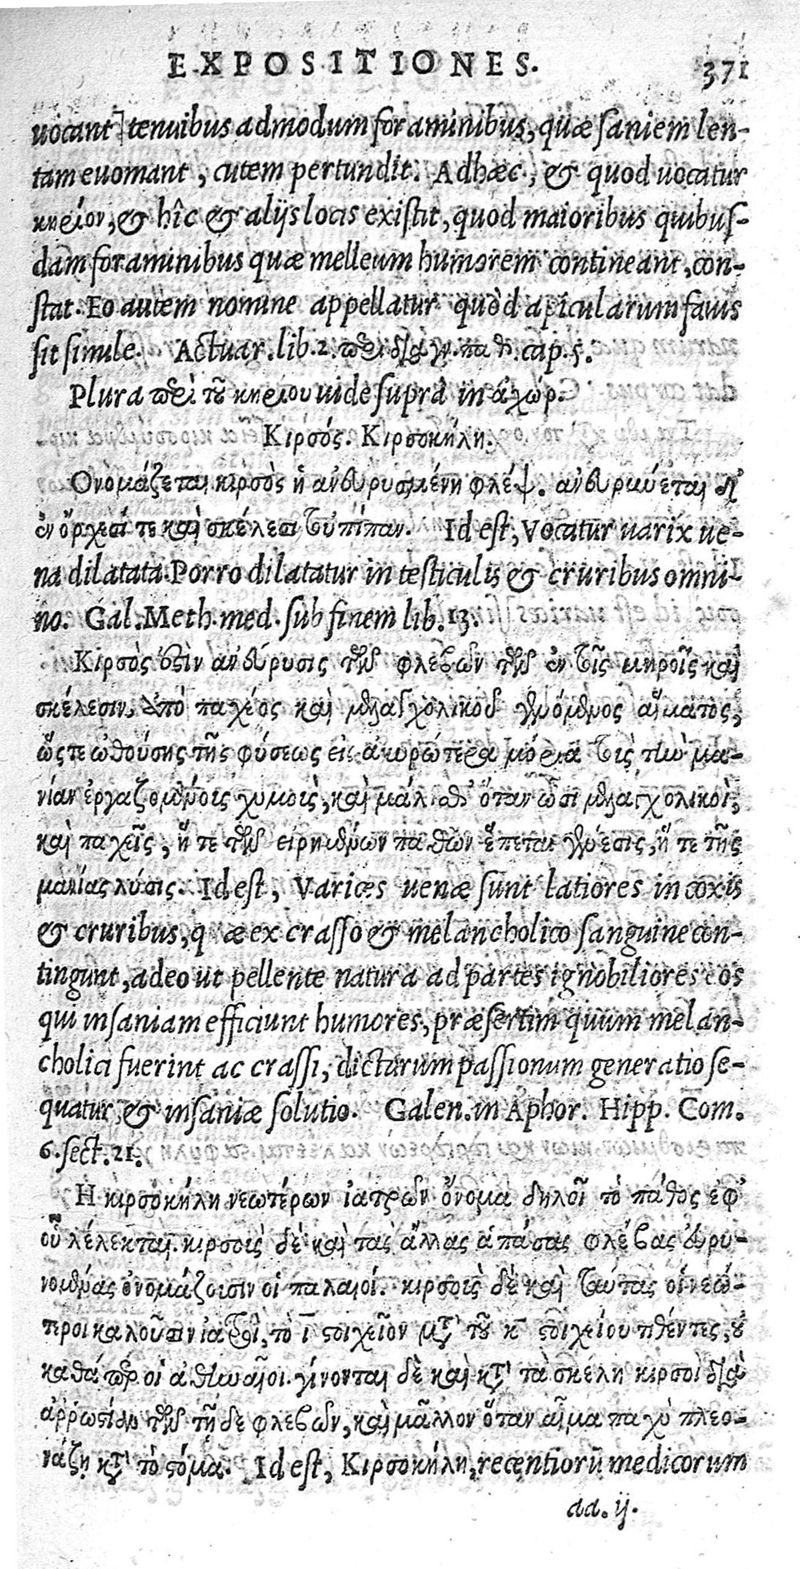 EXPOSITIONES. 371
uocant] tenuibus admodum foraminibus, quæ saniem len-
tam euomant, cutem pertundit. Adhæc, & quod uocatur
κηρίον, & hîc & alijs locis existit, quod maioribus quibus-
dam foraminibus quæ melleum humorem contineant, con-
stat. Eo autem nomine appellatur quòd apicularum fauis
sit simile. Actuar. lib. 2. περὶ διαγν. παθ. cap. 5.
Plura περὶ τοῦ κηρίου uide suprà in ἀχώρ.
Κιρσός. Κιρσοκήλη.
Ονομάζεται κιρσὸς ἡ ἀνευρυσμένη φλέψ. ἀνευρύεται δ᾽
ἐν ὄρχεσί τε καὶ σκέλεσι τυπίπαν. Id est, Vocatur uarix ue-
na dilatata. Porro dilatatur in testiculis & cruribus omni-
no. Gal. Meth. med. sub finem lib. 13.
Κιρσὸς ἐστὶν ἀνεύρυσις τῶν φλεβῶν τῶν ἐν τοῖς μηροῖς καὶ
σκέλεσιν, ἀπὸ παχέος καὶ μελαγχολικοῦ γενόμενος αἵματος,
ὥστε ὠθούσης τῆς φύσεως εἰς ἀκυρώτερα μόρια τοῖς τὴν μα-
νίαν ἐργαζομένοις χυμοῖς, καὶ μάλισθ᾽ ὅταν ὦσι μελαγχολικοὶ,
καὶ παχεῖς, ἥ τε τῶν εἰρημένων παθῶν ἕπεται γένεσις, ἥ τε τῆς
μανίας λύσις. Id est, Varices uenæ sunt latiores in coxis
& cruribus, quæ ex crasso & melancholico sanguine con-
tingunt, adeo ut pellente natura ad partes ignobiliores eos
qui insaniam efficiunt humores, præsertim quum melan-
cholici fuerint ac crassi, dictarum passionum generatio se-
quatur, & insaniæ solutio. Galen. in Aphor. Hipp. Com.
6. sect. 21.
Η κιρσοκήλη νεωτέρων ἰατρῶν ὄνομα δηλοῖ τὸ πάθος ἐφ᾽
οὗ λέλεκται. κιρσοὶς δὲ καὶ τὰς ἄλλας ἁπάσας φλέβας εὐρυ-
νομένας ὀνομάζουσιν οἱ παλαιοί. κιρσοὶς δὲ καὶ ταύτας οἱ νεώ-
τεροι καλοῦσιν ἰατροὶ, τὸ ι στοιχεῖον μετὰ τοῦ κ στοιχείου τιθέντες, οὐ
καθάπερ οἱ ἀθηναῖοι. γίνονται δὲ καὶ κατὰ τὰ σκέλη κιρσοὶ διὰ
ἀρρωστίαν τῶν τῇδε φλεβῶν, καὶ μᾶλλον ὅταν αἷμα παχὺ πλεο-
νάζῃ κατὰ τὸ σόμα. Id est, Κιρσοκήλη, recentiorū medicorum
dd. ij.